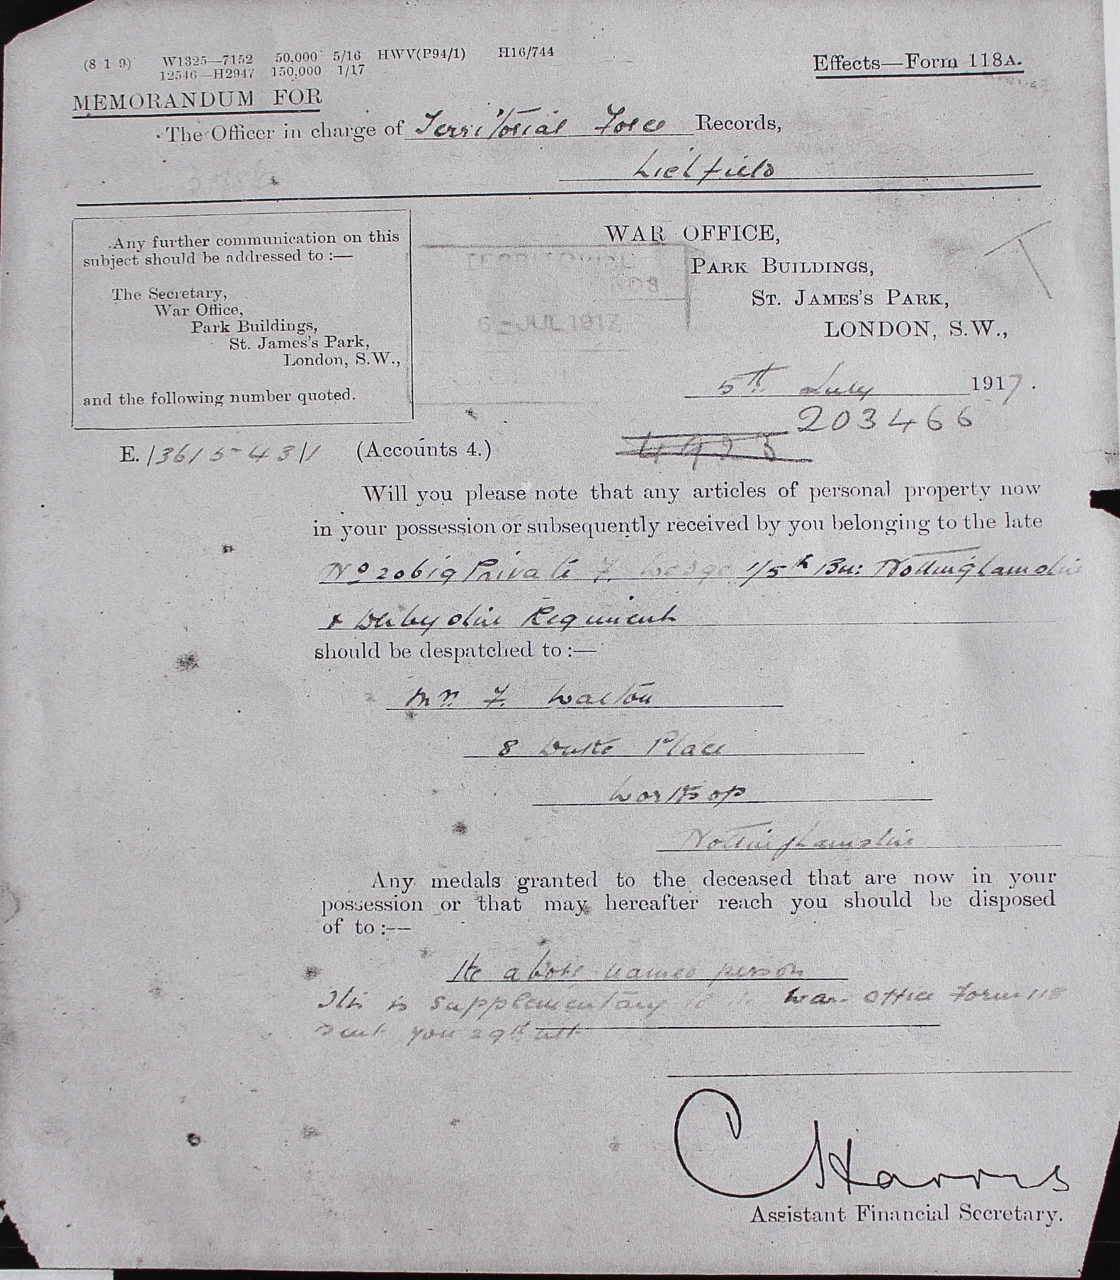 (8 1 9) W1325—7152 50,000 5/16 HWV(P94/1) H16/744
12546—H2947 150,000 1/17
Effects—Form 118A.
MEMORANDUM FOR
The Officer in charge of Territorial Force Records,
Lichfield
Any further communication on this
subject should be addressed to :—
The Secretary,
War Office,
Park Buildings,
St. James's Park,
London, S.W.,
and the following number quoted.
TERRITORIAL
6 - JUL 1917
WAR OFFICE,
PARK BUILDINGS,
ST. JAMES'S PARK,
LONDON, S.W.,
5th July 1917.
203466
4923
E. /3615-43/1 (Accounts 4.)
Will you please note that any articles of personal property now
in your possession or subsequently received by you belonging to the late
No 20619 Private F. 1/5th Bn: Nottinghamshire
& Derbyshire Regiment
should be despatched to :—
Mr. F. Walton
8 Duke Place
Worksop
Nottinghamshire
Any medals granted to the deceased that are now in your
possession or that may hereafter reach you should be disposed
of to :—
The above named person
This is supplementary to War Office Form 118
sent you 29th ult
C Harris
Assistant Financial Secretary.